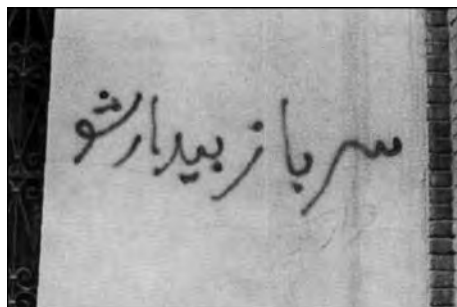 سرباز بیدار شو